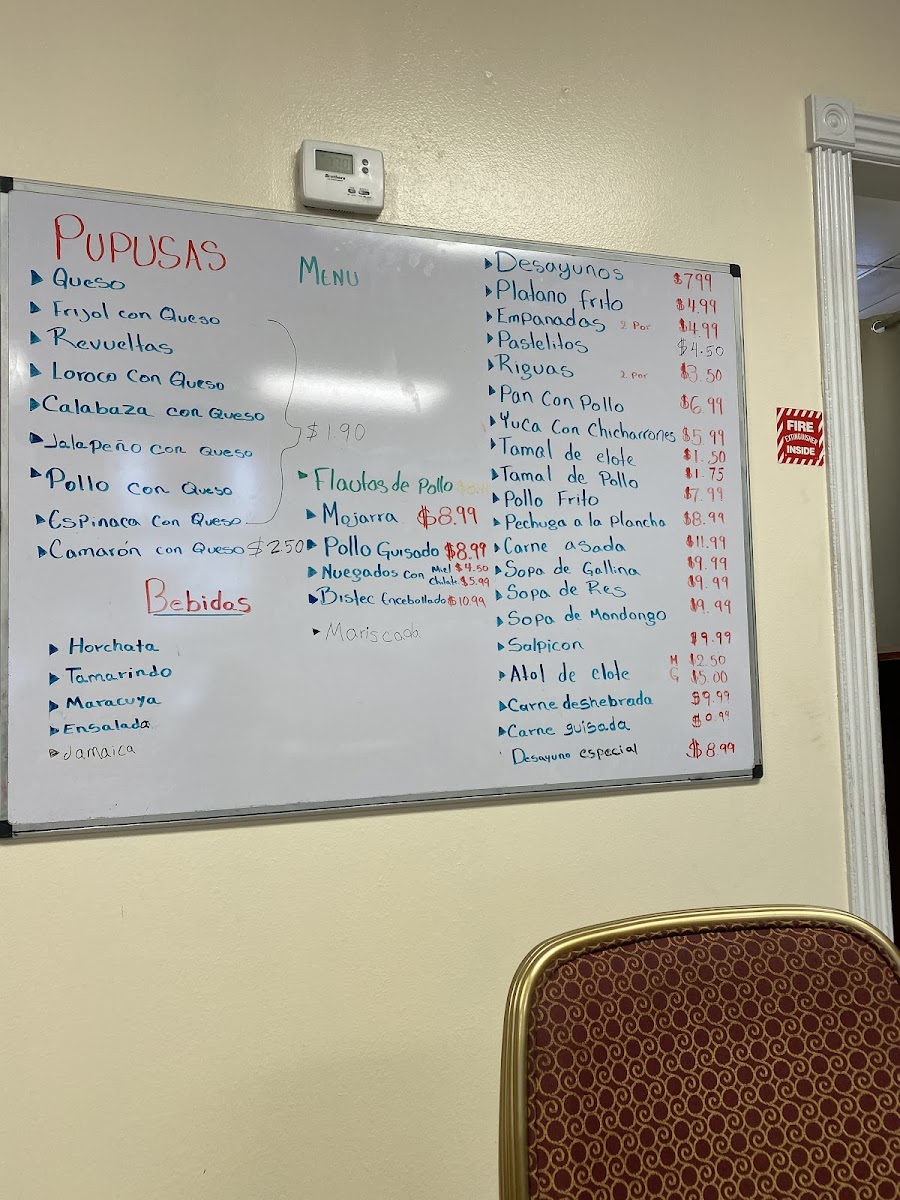 PUPUSAS
Queso
Frijol con Queso
Revueltas
Loroco con Queso
Calabaza con Queso
Jalapeño con Queso
Pollo con Queso
Espinaca con Queso
$1.90
Camarón con Queso $2.50
Bebidas
Horchata
Tamarindo
Maracuya
Ensalada
Jamaica
MENU
Flautas de Pollo
Mojarra $8.99
Pollo Guisado $8.99
Nuegados con Miel $4.50
Chilate $5.99
Bistec Encebollado $10.99
Mariscada
Desayunos $7.99
Platano frito $4.99
Empanadas 2 Por $4.99
Pastelitos $4.50
Riguas 2 Por $3.50
Pan Con Pollo $6.99
Yuca Con Chicharrones $5.99
Tamal de elote $1.50
Tamal de Pollo $1.75
Pollo Frito $7.99
Pechuga a la plancha $8.99
Carne asada $11.99
Sopa de Gallina $9.99
Sopa de Res $9.99
Sopa de Mondongo $9.99
Salpicon $9.99
Atol de elote M $2.50
G $5.00
Carne deshebrada $9.99
Carne guisada
Desayuno especial $8.99
FIRE
EXTINGUISHER
INSIDE